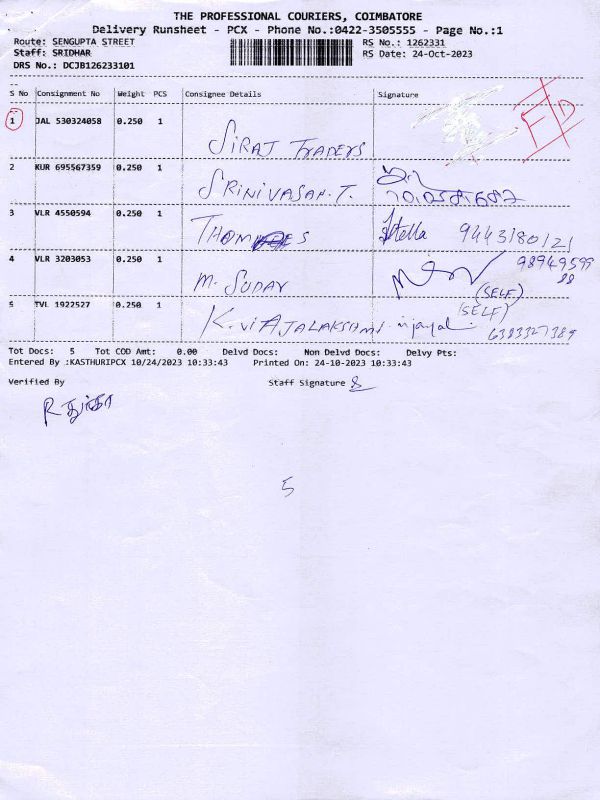 THE PROFESSIONAL COURIERS, COIMBATORE
Delivery Runsheet - PCX - Phone No.:0422-3505555 - Page No.:1
Route: SENGUPTA STREET
RS No.: 1262331
Staff: SRIDHAR
RS Date: 24-Oct-2023
DRS No.: DCJB126233101
S No Consignment No Weight PCS Consignee Details Signature
1 JAL 530324058 0.250 1 SIRAJ TRADERS F/D
2 KUR 695567359 0.250 1 SRINIVASAN.T.
3 VLR 4550594 0.250 1 Stella 9443180121
4 VLR 3203053 0.250 1 M. SUDAR (SELF) 9894959988
5 TVL 1922527 0.250 1 K.VIJAJALAKSHMI (SELF) 6383327389
Tot Docs: 5 Tot COD Amt: 0.00 Delvd Docs: Non Delvd Docs: Delvy Pts:
Entered By :KASTHURIPCX 10/24/2023 10:33:43 Printed On: 24-10-2023 10:33:43
Verified By Staff Signature
5